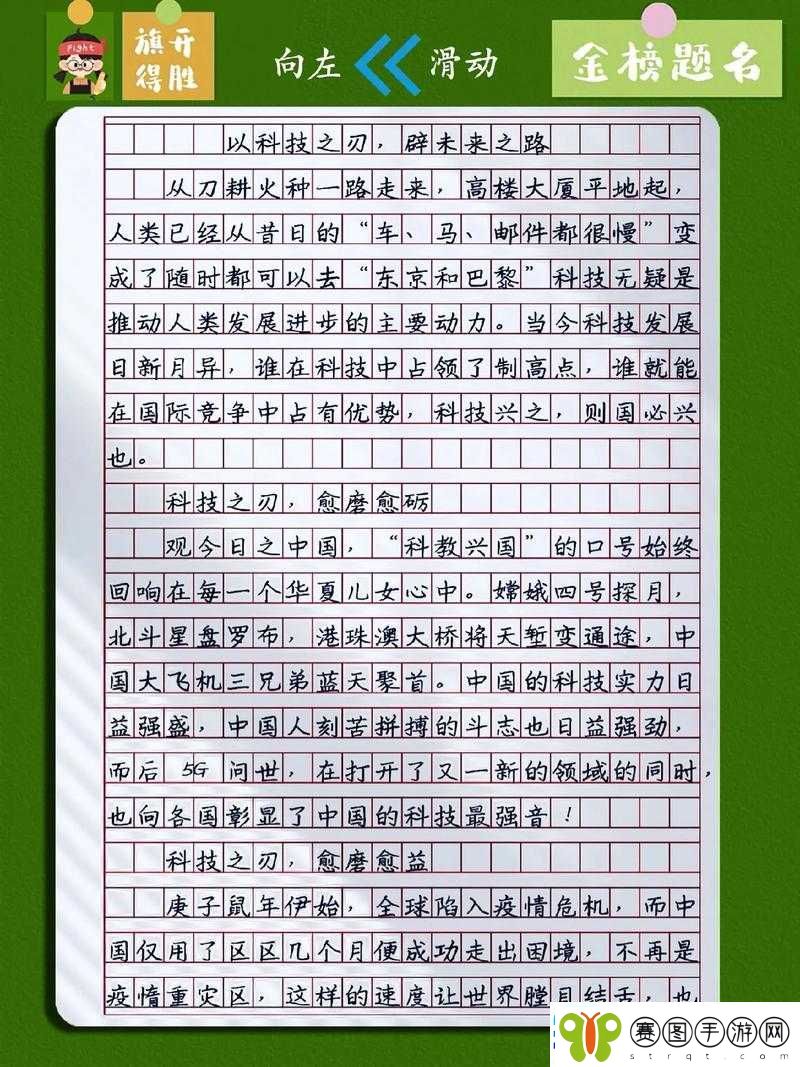 Fight
旗开
得胜
向左
滑动
金榜题名
以科技之刃，辟未来之路
从刀耕火种一路走来，高楼大厦平地起，
人类已经从昔日的“车、马、邮件都很慢”变
成了随时都可以去“东京和巴黎”科技无疑是
推动人类发展进步的主要动力。当今科技发展
日新月异，谁在科技中占领了制高点，谁就能
在国际竞争中占有优势，科技兴之，则国必兴
也。
科技之刃，愈磨愈砺
观今日之中国，“科教兴国”的口号始终
回响在每一个华夏儿女心中。嫦娥四号探月，
北斗星盘罗布，港珠澳大桥将天堑变通途，中
国大飞机三兄弟蓝天聚首。中国的科技实力日
益强盛，中国人刻苦拼搏的斗志也日益强劲，
而后5G问世，在打开了又一新的领域的同时，
也向各国彰显了中国的科技最强音！
科技之刃，愈磨愈益
庚子鼠年伊始，全球陷入疫情危机，而中
国仅用了区区几个月便成功走出困境，不再是
疫情重灾区，这样的速度让世界瞠目结舌，也
赛图手游网
strqt.com